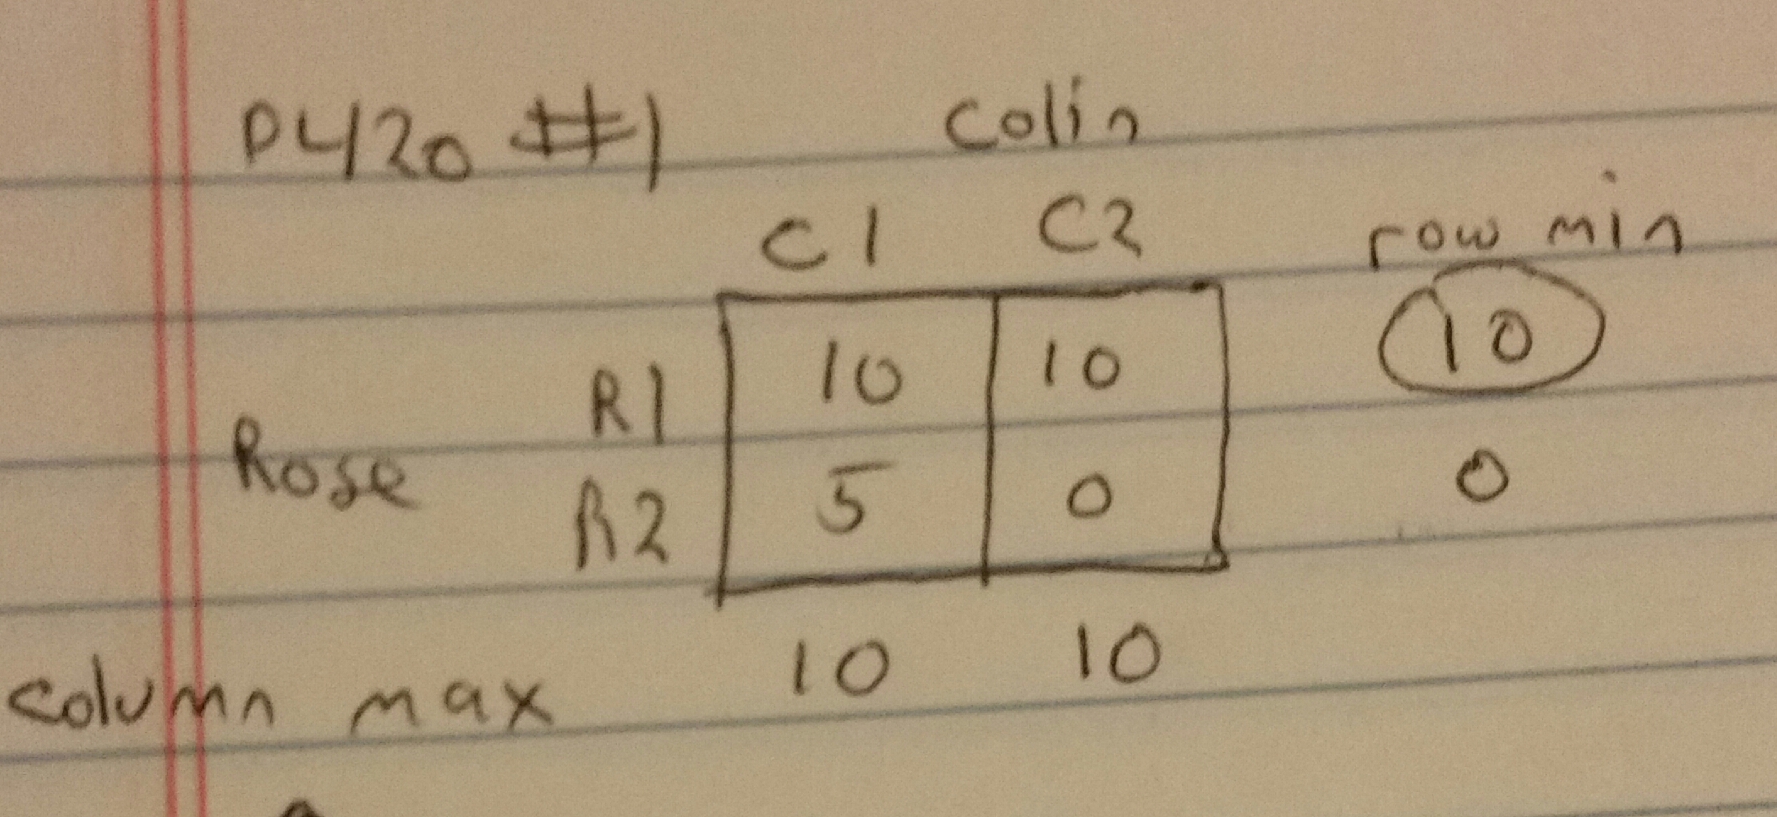 P420 #1 Colin
C1 C2 row min
R1 10 10 10
Rose
R2 5 0 0
column max 10 10